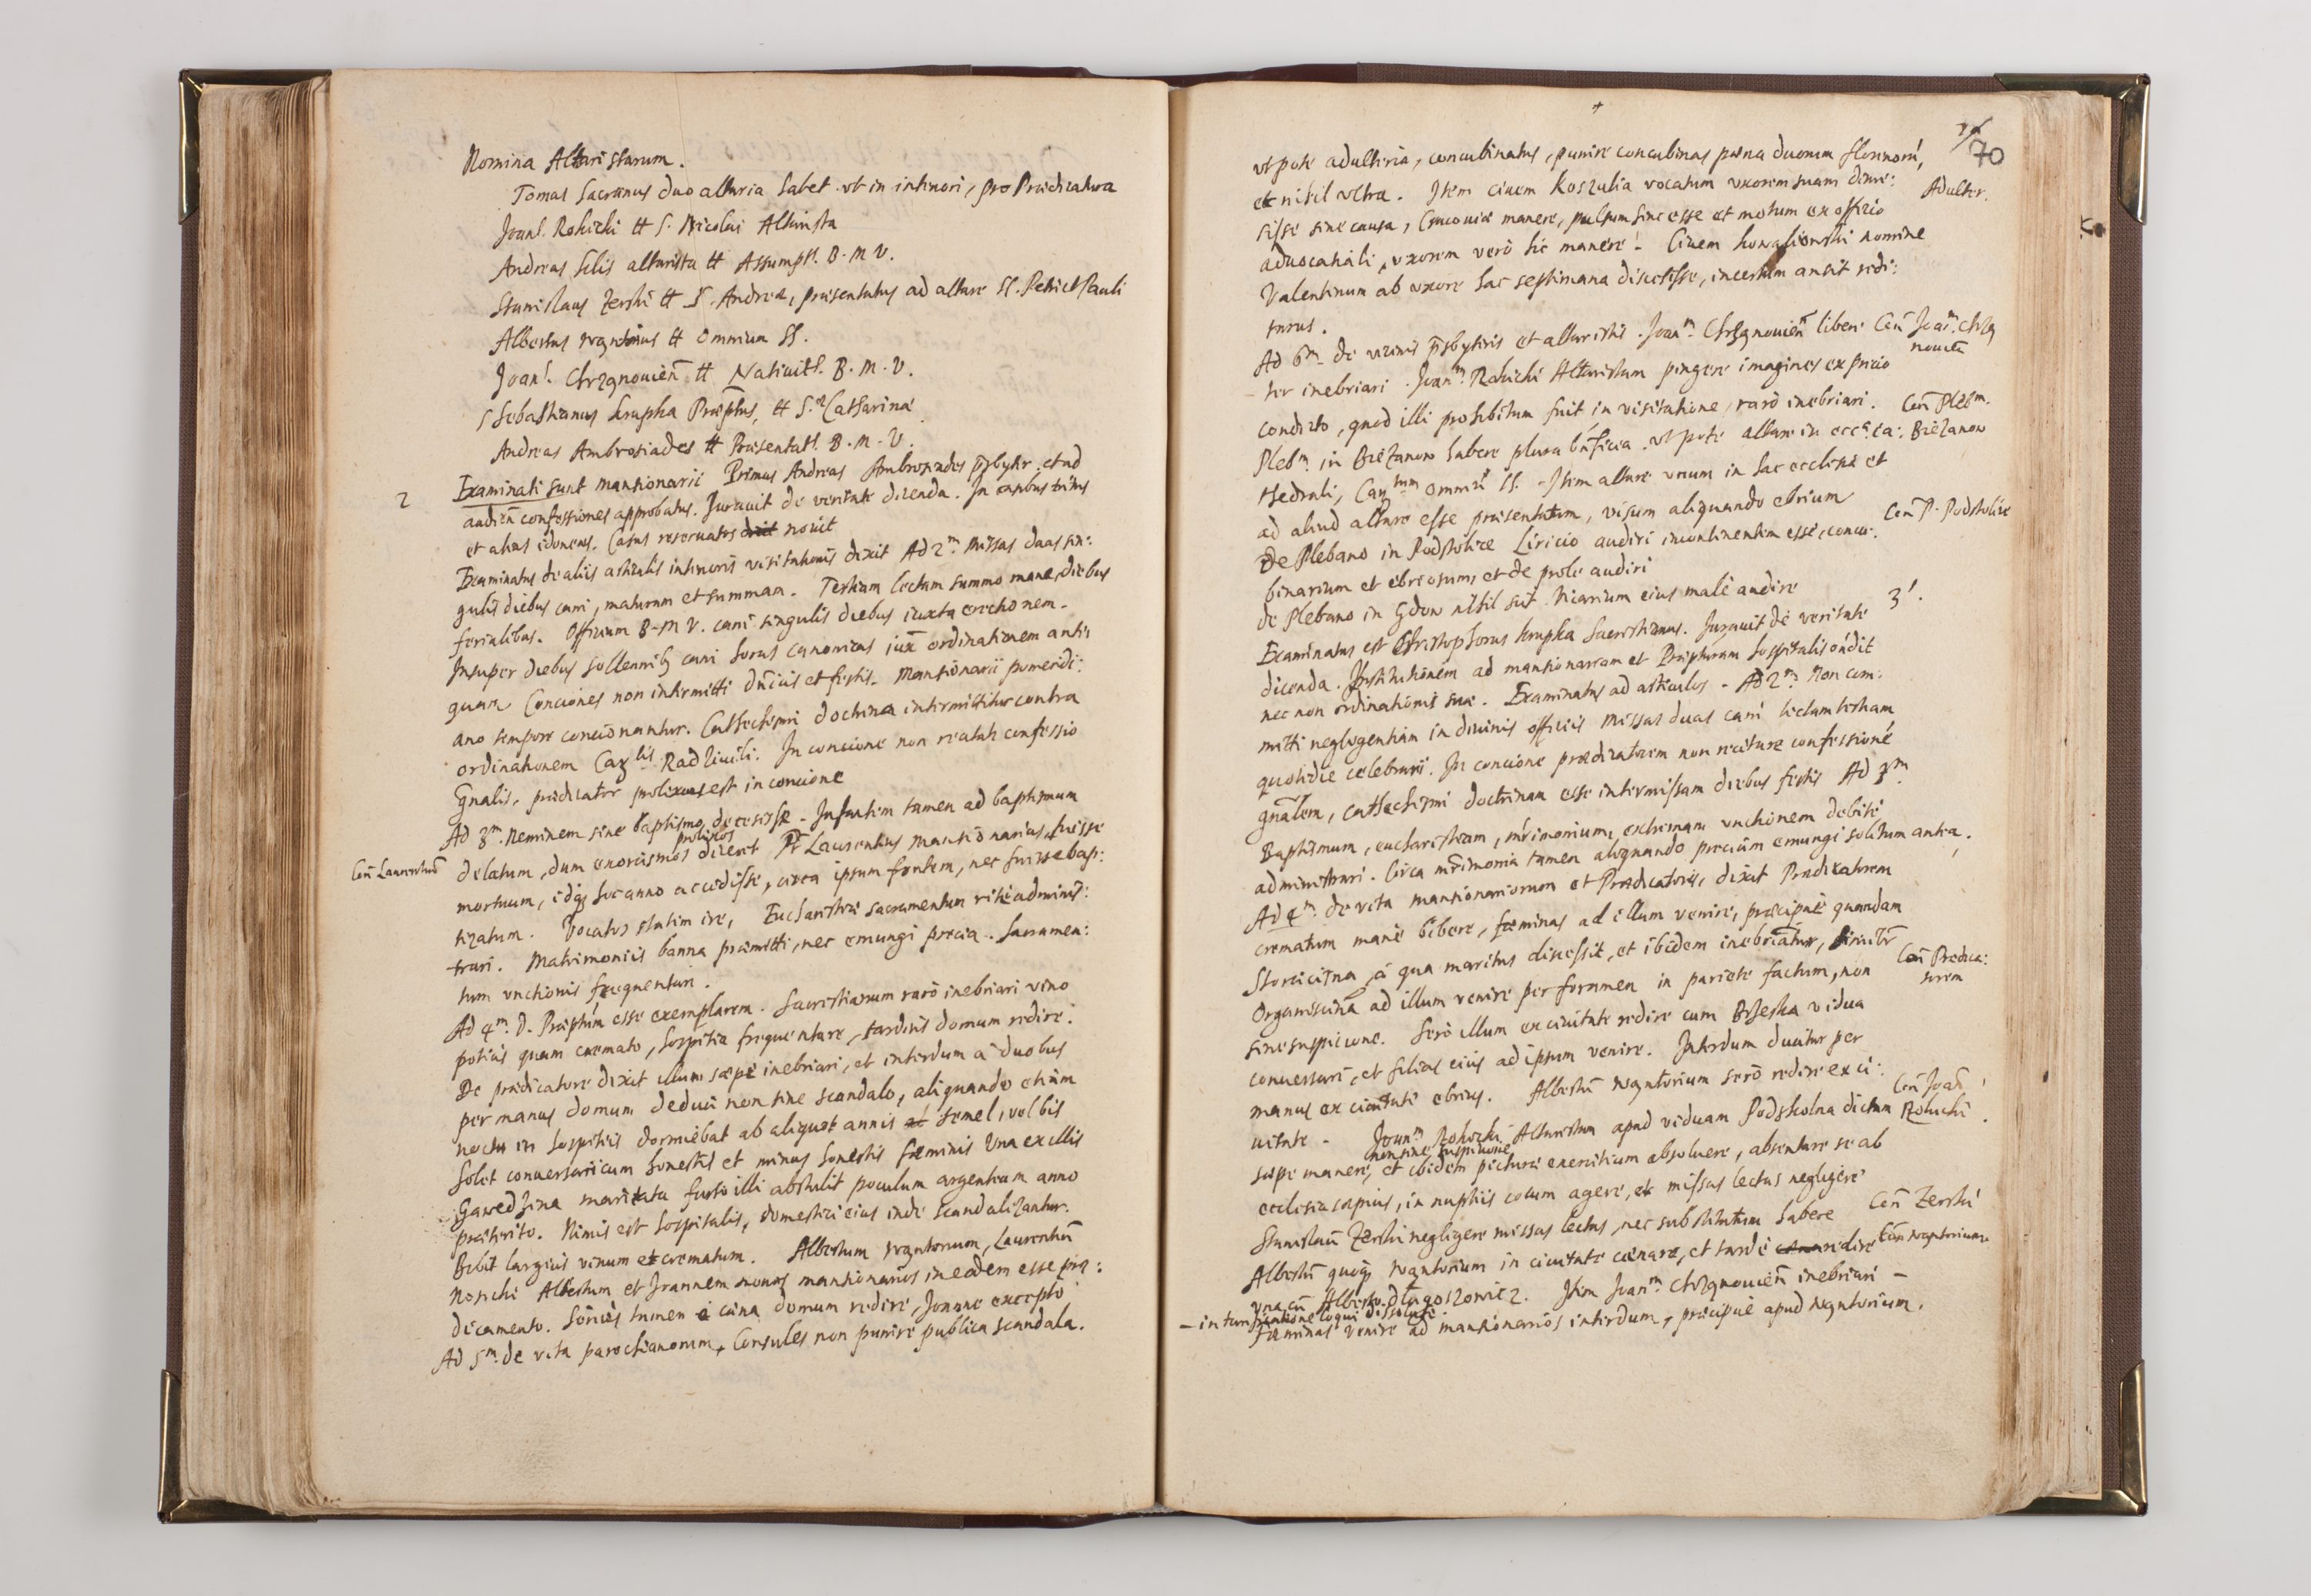 Nomina Altaristarum.
Tomas Sacranus duo altaria habet vt in interiori, pro Prædicatura
Joan. Rohicki tt S. Nicolai Altarista
Andreas altarista tt Assumpt. B. M V.
Stanislaus Zerski tt S. Andreæ, præsentatus ad altare SS. Petri et Pauli
Albertus tt Omnium SS.
Joan. Chrzanouień tt Natiuit. B. M. V.
Sebastianus Krupka Præptus, tt S. Catharinæ
Andreas Ambrosiades tt Præsentat. B. M. V.
2 Examinati sunt mansionarii Primus Andreas Ambrosiades p̄sbyter et ad
audień confessiones approbatus. Jurauit de veritate dicenda. In casibus
et alias idoneus. Casus reseruatos dixit nouit
Examinatus de aliis articulis interioris visitationis dixit Ad 2m. Missas duas sin:
gulis diebus cani, maturam et summam. Tertiam lectam summo mane, diebus
ferialibus. Officium B. M V. cani singulis diebus iuxta erectionem.
Insuper diebus sollennib9 cani horas canonicas iux̄ ordinationem anti:
quam Conciones non intermitti dn̄icis et festis. Mansionarii pomeridi:
ano tempore concionantur. Cathechismi doctrina intermittitur contra
ordinationem Car.lis Radziuili. In concione non recitatur confessio
g̅nalis, prædicator prolixus est in concione
Ad 3m. Neminem sine baptismo decessisse. Infantem tamen ad baptismum
Coń Laurentiū delatum, dum exorcismos prolixos diceret Pr Laurentius mansionarius, fuisse
mortuum, idq3 hoc anno accidisse, circa ipsum fontem, nec fuisse bap:
tizatum. Vocatos statim ire, Eucharistiæ sacramentum rite administ:
trari. Matrimoniis banna præmitti, nec emungi precia. Sacramen:
tum vnctionis frequentari.
Ad 4m. D. Præptum esse exemplarem. Sacristianum raro inebriari vino
potius quam cremato, hospitia frequentare, tardius domum redire.
De prædicatore dixit illum sæpe inebriari, et interdum a duobus
per manus domum deduci non sine scandalo, aliquando etiam
noctu in hospitiis dormiebat ab aliquot annis semel, vel bis
Solet conuersari cum honestis et minus honestis fæminis Vna ex illis
Gawedzina maritata furto illi abstulit poculum argenteum anno
præterito. Nimis est hospitalis, domestici eius inde scandalizantur.
Bibit largius vinum et crematum. Albertum Laurentiū
Albertum et Joannem nouos mansionarios in eodem esse præ:
dicamento. Serius tamen e cæna domum redire, Joanne excepto
Ad 5m. de vita parochianorum, Consules non punire publica scandala.
+
70
vt pote adulteria, concubinatus, punire concubinas pæna duorum florenorū,
et nihil vltra. Item ciuem Koszulia vocatum vxorem suam dimi: Adulter.
sisse sine causa, Cracouiæ manere, pulsum hinc esse et motum ex officio
aduocatiali, vxorem vero hic manere. Ciuem Kowaliowski nomine
Valentinum ab vxore hac septimana discessisse, incertum an sit redi:
turus.
Ad 6m. De vicinis p̄sbyteris et altaristis. Joanm. Chrzanouień libere Coń Joan.m Chrza
ter inebriari. Joanm. Rohicki Altaristam pingere imagines ex precio nouień
condicto, quod illi prohibitum fuit in visitatione, raro inebriari. Coń Plebm.
Plebm. in Bieżanow habere plura bn̄ficia. vt pote altare in eccl.ca: Bieżanow
thedrali, Omniū SS. Item altare vnum in hac ecclesia et
ad aliud altare esse præsentatum, visum aliquando ebrium
De Plebano in Podstolice Liricio audiri incontinentem esse, concu: Coń P. Podstolice
binarium et ebriosum, et de prole audiri
de Plebano in Gdow nihil scit. Vicarium eius male audire
Examinatus est Christophorus Krupka Sacristianus. Jurauit de veritate 3.
dicenda. Institutionem ad mansionariam et Præpturam hospitalis ōndit
nec non ordinationis suæ. Examinatus ad articulos. Ad 2m. Non com:
mitti neglegentiam in diuinis officiis Missas duas cani lectam tertiam
quotidie celebrari. In concione prædicatorem non recitare confessionē
gn̄alem, cathechismi doctrinam esse intermissam diebus festis Ad 3m.
Baptismum, eucharistiam, mr̄imonium, extremam vnctionem debite
administrari. Circa mr̄imonia tamen aliquando precium emungi solitum antea.
Ad 4m. de vita mansionariorum et Prædicatoris, dixit Prædicatorem
crematum mane bibere, fæminas ad illum venire, præcipue quandam
a qua maritus discessit, et ibidem inebriatur,
Organiscina ad illum venire per foramen in pariete factum, non Coń Prædica:
sine suspicione. Sero illum ex ciuitate redire cum Brzeska vidua torem
conuersari, et filias eius ad ipsum venire. Interdum ducitur per
manus ex ciuitate ebrius. Albertū sero redire ex ci:
uitate. Joanm Rohicki Altaristam apud viduam Podskolna dictam Coń Joań Rohicki.
sæpe manere, non sine suspicione et ibidem picturæ exercitium absoluere, absentare se ab
ecclesia sæpius, in nuptiis cocum agere, et missas lectas negligere
Stanislaū Zerski negligere missas lectas, nec substitutum habere Coń Zerski
Albertū quoq3 in ciuitate cænare, et tarde redire
vna cū Alberto Długoszowicz. Item Joanm. Chrzanouień inebriari –
– in turpi loqui dissolute
Fæminas venire ad mansionarios interdum, præcipue apud